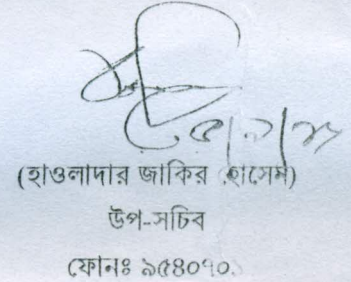 (হাওলাদার জাকির হোসেন)
উপ-সচিব
ফোনঃ ৯৫৪০৭০১